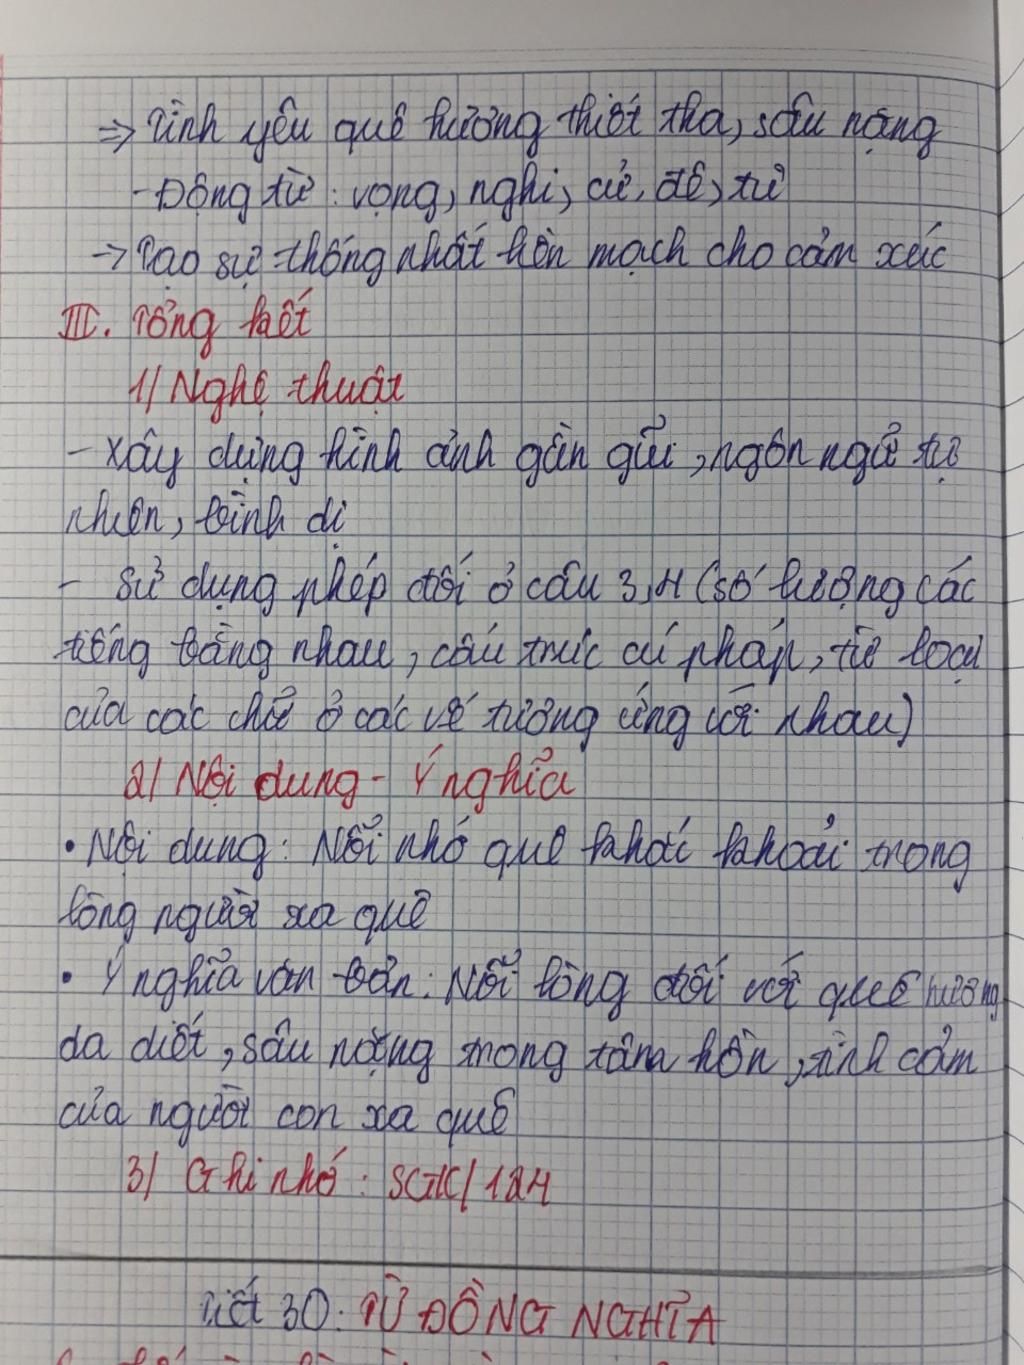 => Tình yêu quê hương thiết tha, sâu nặng
- Động từ : vọng, nghi, cử, đê, tư
-> Tạo sự thống nhất liền mạch cho cảm xúc
III. Tổng kết
1/ Nghệ thuật
- Xây dựng hình ảnh gần gũi, ngôn ngữ tự
nhiên, bình dị
- Sử dụng phép đối ở câu 3,4 (số lượng các
tiếng bằng nhau, cấu trúc cú pháp, từ loại
của các chữ ở các vế tương ứng với nhau)
2/ Nội dung - Ý nghĩa
• Nội dung: Nỗi nhớ quê khắc khoải trong
lòng người xa quê
• Ý nghĩa văn bản: Nỗi lòng đối với quê hương
da diết, sâu nặng trong tâm hồn, tình cảm
của người con xa quê
3/ Ghi nhớ : SGK/124
Tiết 30: TỪ ĐỒNG NGHĨA